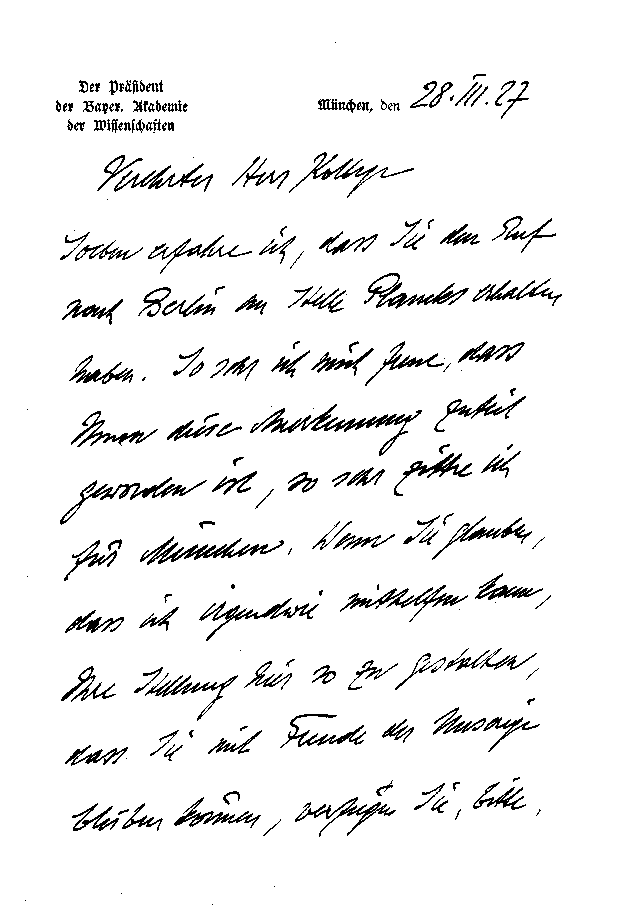 Der Präsident
der Bayer. Akademie
der Wissenschaften
München, den 28.III.27
Verehrter Herr Kollege
Soeben erfahre ich, dass Sie den Ruf
nach Berlin an Stelle Plancks erhalten
haben. So sehr ich mich freue, dass
Ihnen diese Anerkennung zuteil
geworden ist, so sehr zittre ich
für München. Wenn Sie glauben,
dass ich irgendwie mithelfen kann,
Ihre Stellung hier so zu gestalten,
dass Sie mit Freude der Unsrige
bleiben können, verfügen Sie, bitte,